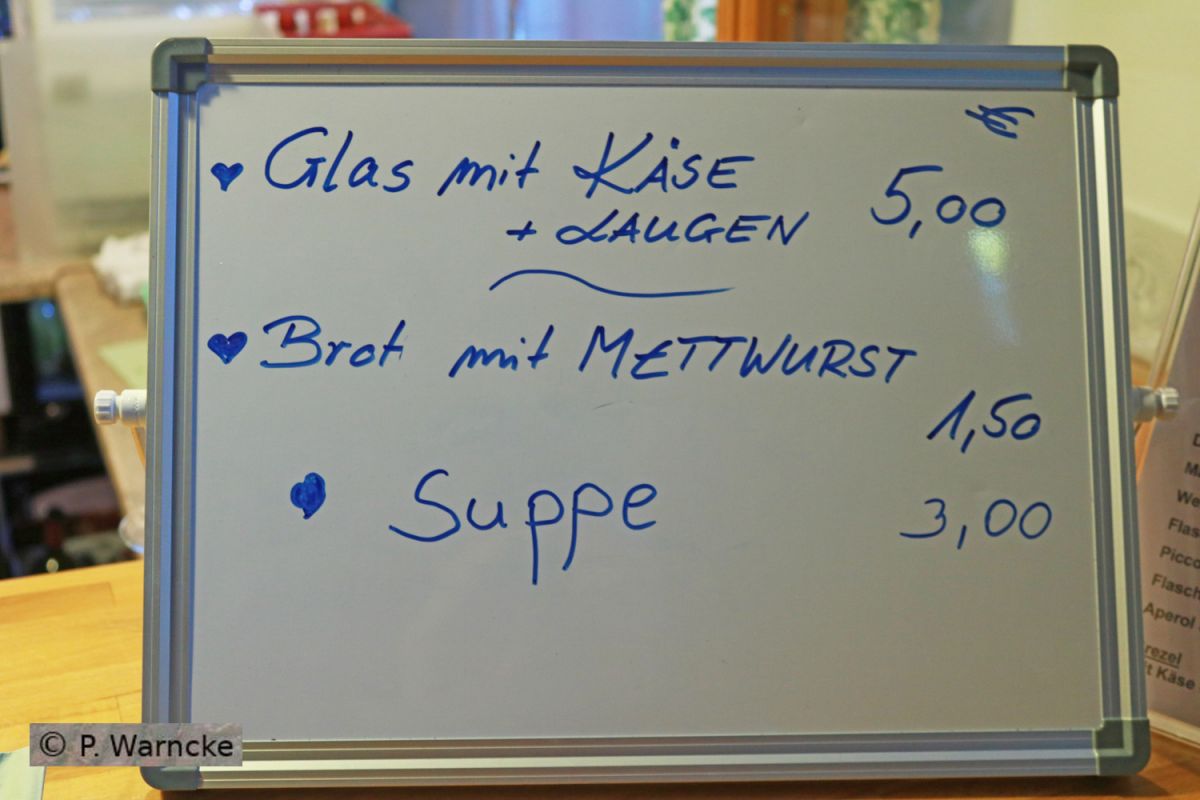 €
♥ Glas mit KÄSE
+ LAUGEN 5,00
♥ Brot mit METTWURST
1,50
♥ Suppe 3,00
We
Flas
Picco
Flasch
Aperol
rezel
it Käse
© P. Warncke